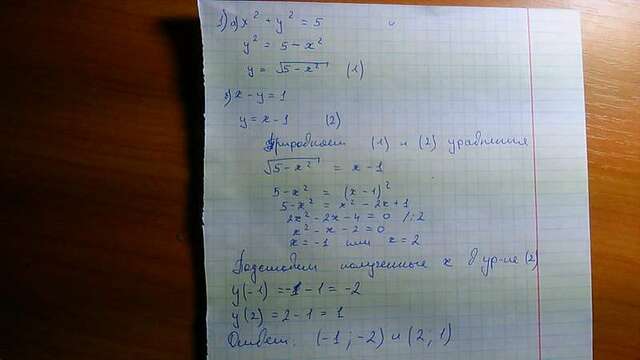 1) а) x² + y² = 5
y² = 5 - x²
y = √5 - x² (1)
б) x - y = 1
y = x - 1 (2)
Приравняем (1) и (2) уравнения
√5 - x² = x - 1
5 - x² = (x - 1)²
5 - x² = x² - 2x + 1
2x² - 2x - 4 = 0 /:2
x² - x - 2 = 0
x = -1 или x = 2
Подставим полученные x в ур-ие (2)
y(-1) = -1 - 1 = -2
y(2) = 2 - 1 = 1
Ответ: (-1; -2) и (2; 1)